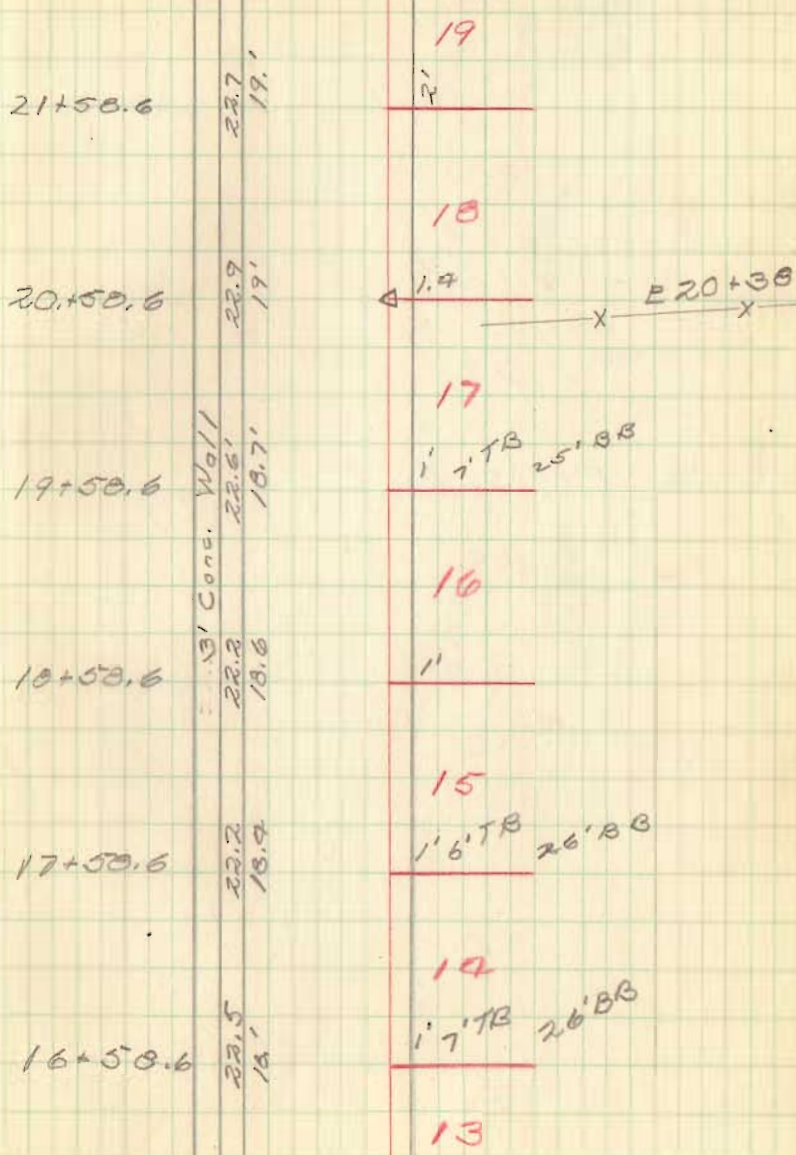 19
21+58.6 22.7 19.' 2'
18
20.+58.6 22.9 19' 1.4 E 20+38
17
19+58.6 22.6' 18.7' 1' 7' TB 25' BB
3' Conc. Wall
16
18+58.6 22.2 18.6 1'
15
17+58.6 22.2 18.4 1' 6' TB 26' BB
14
16+58.6 22.5 18.' 1' 7' TB 26' BB
13